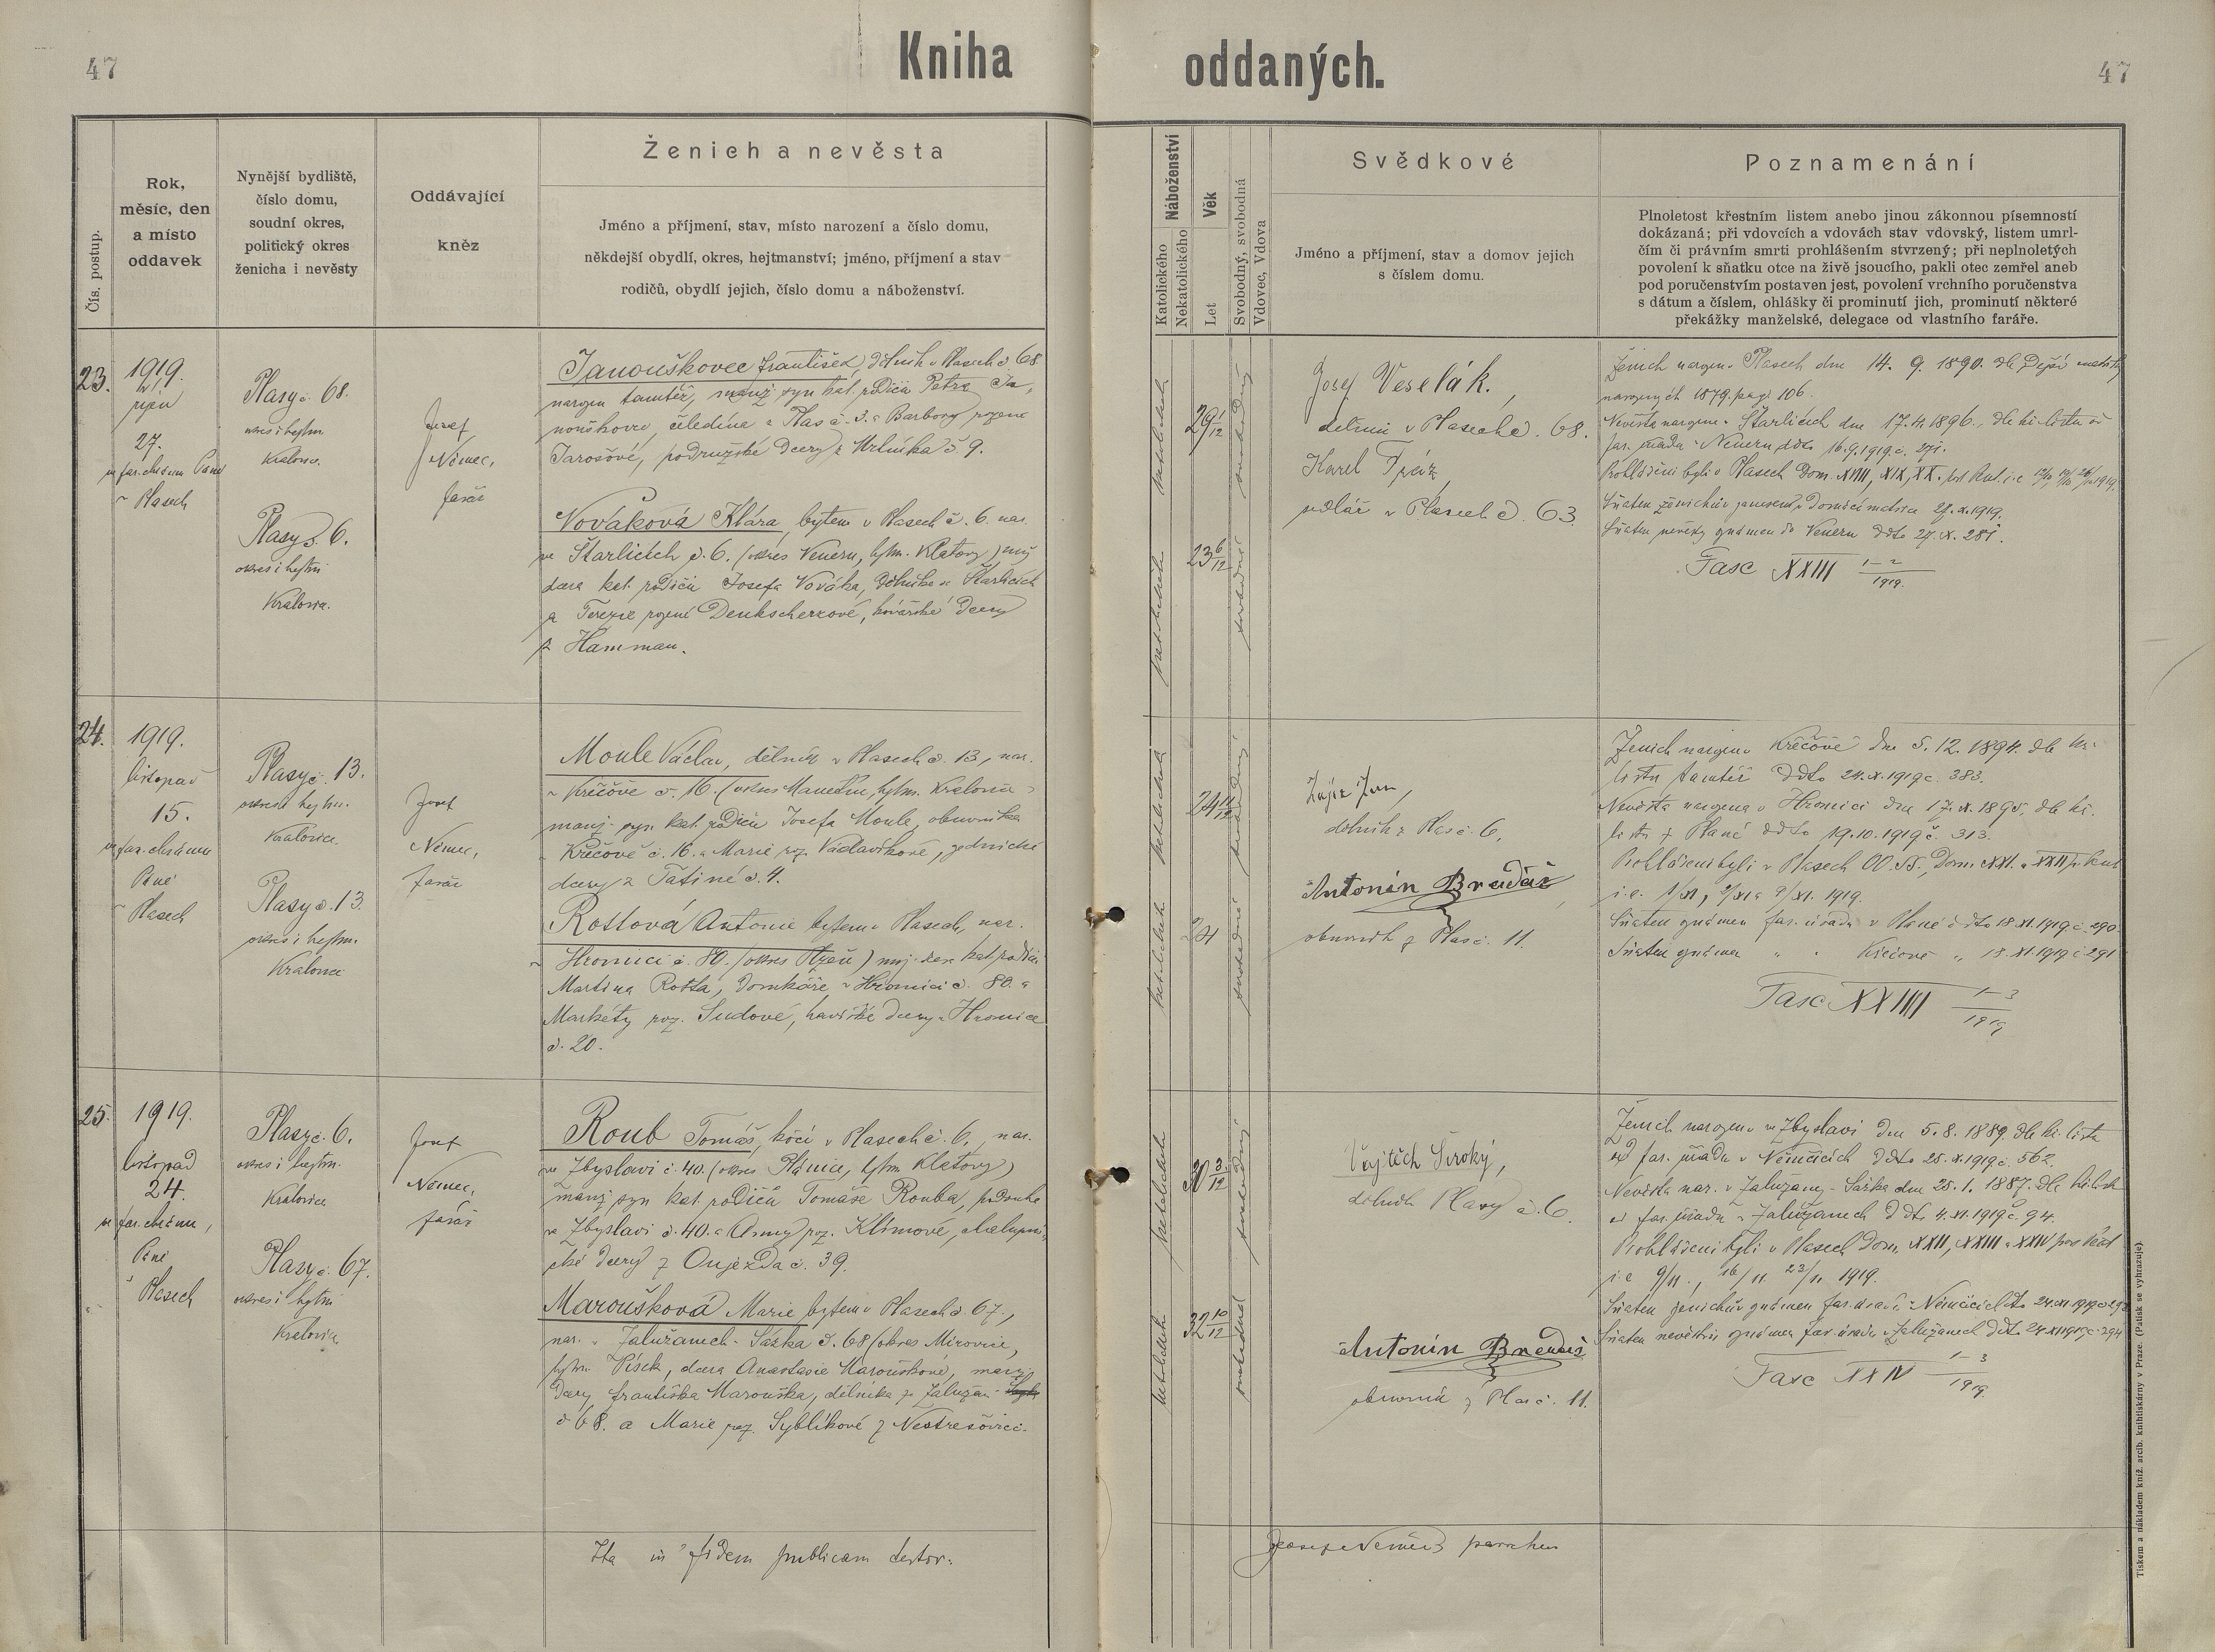 47
Kniha oddaných.
47
Čís. postup.
Rok,
měsíc, den
a místo
oddavek
Nynější bydliště,
číslo domu,
soudní okres,
politický okres
ženicha i nevěsty
Oddávající
kněz
Ženich a nevěsta
Jméno a příjmení, stav, místo narození a číslo domu,
někdejší obydlí, okres, hejtmanství; jméno, příjmení a stav
rodičů, obydlí jejich, číslo domu a náboženství.
Náboženství
Katolického
Nekatolického
Věk
Let
Svobodný, svobodná
Vdovec, Vdova
Svědkové
Jméno a příjmení, stav a domov jejich
s číslem domu.
Poznamenání
Plnoletost křestním listem anebo jinou zákonnou písemností
dokázaná; při vdovcích a vdovách stav vdovský, listem umrl-
čím či právním smrti prohlášením stvrzený; při neplnoletých
povolení k sňatku otce na živě jsoucího, pakli otec zemřel aneb
pod poručenstvím postaven jest, povolení vrchního poručenstva
s dátum a číslem, ohlášky či prominutí jich, prominutí některé
překážky manželské, delegace od vlastního faráře.
23.
1919.
říjen
27.
v Plasech
Plasy č. 68.
okres i hejtm.
Kralovice.
Plasy č. 6.
okres i hejtm.
Kralovice.
Josef
Němec,
farář
Janouškovec František, dělník v Plasech č. 68
narozen tamtéž, manž. syn kat. rodičů Petra Ja-
nouškovce, čeledína z Plas č. 3. a Barbory rozené
Jarošové, podružské dcery z č. 9.
Nováková Klára, bytem v Plasech č. 6. nar.
ve Starlicích č. 6. (okres Neuern, hejtm. Klatovy)
dcera kat. rodičů Josefa Nováka, dělníka ve Starlicích
a Terezie rozené Denkscherzové, kovářské dcery
z Hamman.
katolické
29 1/12
svobodný
katolické
23 6/12
svobodná
Josef Veselák,
dělník v Plasech č. 68.
Karel Tráz,
sedlář v Plasech č. 63.
Ženich narozen v Plasech dne 14. 9. 1890. dle matriky
narozených 1879. pag. 106.
Nevěsta narozena v Starlicích dne 17. 4. 1896., dle kř. listu od
far. úřadu v Neuern ddto 16. 9. 1919 č. 271.
Prohlášeni byli v Plasech Dom. XVIII, XIX, XX. post Pent. i. e. 12/10 19/10 26/10 1919.
Sňatek ženichův zanesen v Domácí matrice 27. X. 1919.
Sňatek nevěsty oznámen do Neuern ddto 27. X. 281.
Fasc XXIII 1–2 / 1919.
24.
1919.
listopad
15.
ve far. chrámu
Páně
v Plasech
Plasy č. 13.
okres i hejtm.
Kralovice.
Plasy č. 13.
okres i hejtm.
Kralovice
Josef
Němec,
farář
Moule Václav, dělník v Plasech č. 13, nar.
v Křečově č. 16. (okres Manětín, hejtm. Kralovice)
manž. syn kat. rodičů Josefa Moule, obuvníka
v Křečově č. 16. a Marie roz. Václavíkové, zednické
dcery z Tatiné č. 4.
Rottová Antonie bytem v Plasech, nar.
v Hromnici č. 80. (okres Plzeň) manž. dcera kat. rodičů
Martina Rotta, domkáře v Hromnici č. 80. a
Markéty roz. Sudové, havířské dcery z Hromnice
č. 20.
katolické
24 11/12
svobodný
katolické
24
svobodná
Zajíc Jan,
dělník z Plas č. 6.
Antonín Bradáč
obuvník z Plas č. 11.
Ženich narozen v Křečově dne 5. 12. 1894. dle kř.
listu tamtéž ddto 24. X. 1919 č. 383.
Nevěsta narozena v Hromnici dne 17. X. 1895, dle kř.
listu z Plané ddto 19. 10. 1919 č. 313.
Prohlášeni byli v Plasech OO. SS., Dom. XXI. a XXII p. Pent
i. e. 1/XI, 2/XI a 9/XI. 1919.
Sňatek oznámen far. úřadu v Plané ddto 18. XI. 1919 č. 290.
Sňatek oznámen „ „ Křečově „ 18. XI. 1919 č. 291
Fasc XXIIII 1–3 / 1919
25.
1919.
listopad
24.
ve far. chrámu,
Páně
v Plasech
Plasy č. 6.
okres i hejtm.
Kralovice
Plasy č. 67.
okres i hejtm
Kralovice
Josef
Němec,
farář
Roub Tomáš, kočí v Plasech č. 6., nar.
ve Zbyslavi č. 40. (okres Plánice, hejtm. Klatovy)
manž. syn kat. rodičů Tomáše Rouba, podruha
ve Zbyslavi č. 40. a Anny roz. Klímové, chalupni-
cké dcery z Oujezda č. 39.
Maroušková Marie, bytem v Plasech č. 67.,
nar. v Zalužanech - Sázka č. 68 (okres Mirovice,
hejtm. Písek, dcera Anastasie Marouškové, manž.
dcery Františka Marouška, dělníka ze Zalužan
č. 68. a Marie roz. Syblíkové z Nestrašovic.
katolické
30 3/12
svobodný
katolické
32 10/12
svobodná
Vojtěch Široký,
dělník Plasy č. 6.
Antonín Bradáč
obuvník z Plas č. 11.
Ženich narozen ve Zbyslavi dne 5. 8. 1889. dle kř. listu
od far. úřadu v Němčicích ddto 25. X. 1919 č. 562.
Nevěsta nar. v Zalužany - Sázka dne 25. 1. 1887. dle kř. listu
od far. úřadu v Zalužanech ddto 4. XI. 1919 č. 94.
Prohlášeni byli v Plasech Dom. XXII, XXIII a XXIV post Pent
i. e 9/11., 16/11 23/11. 1919.
Sňatek ženichův oznámen far. úřadu v Němčicích ddto 24. XI. 1919
Sňatek nevěstin oznámen far. úřadu v Zalužanech ddto 24 XI 1919 č. 294
Fasc XXIV 1–3 / 1919.
Ita in fidem publicam testor.
Josef Němec parochus
Tiskem a nákladem kníž. arcib. knihtiskárny v Praze. (Patisk se vyhrazuje).